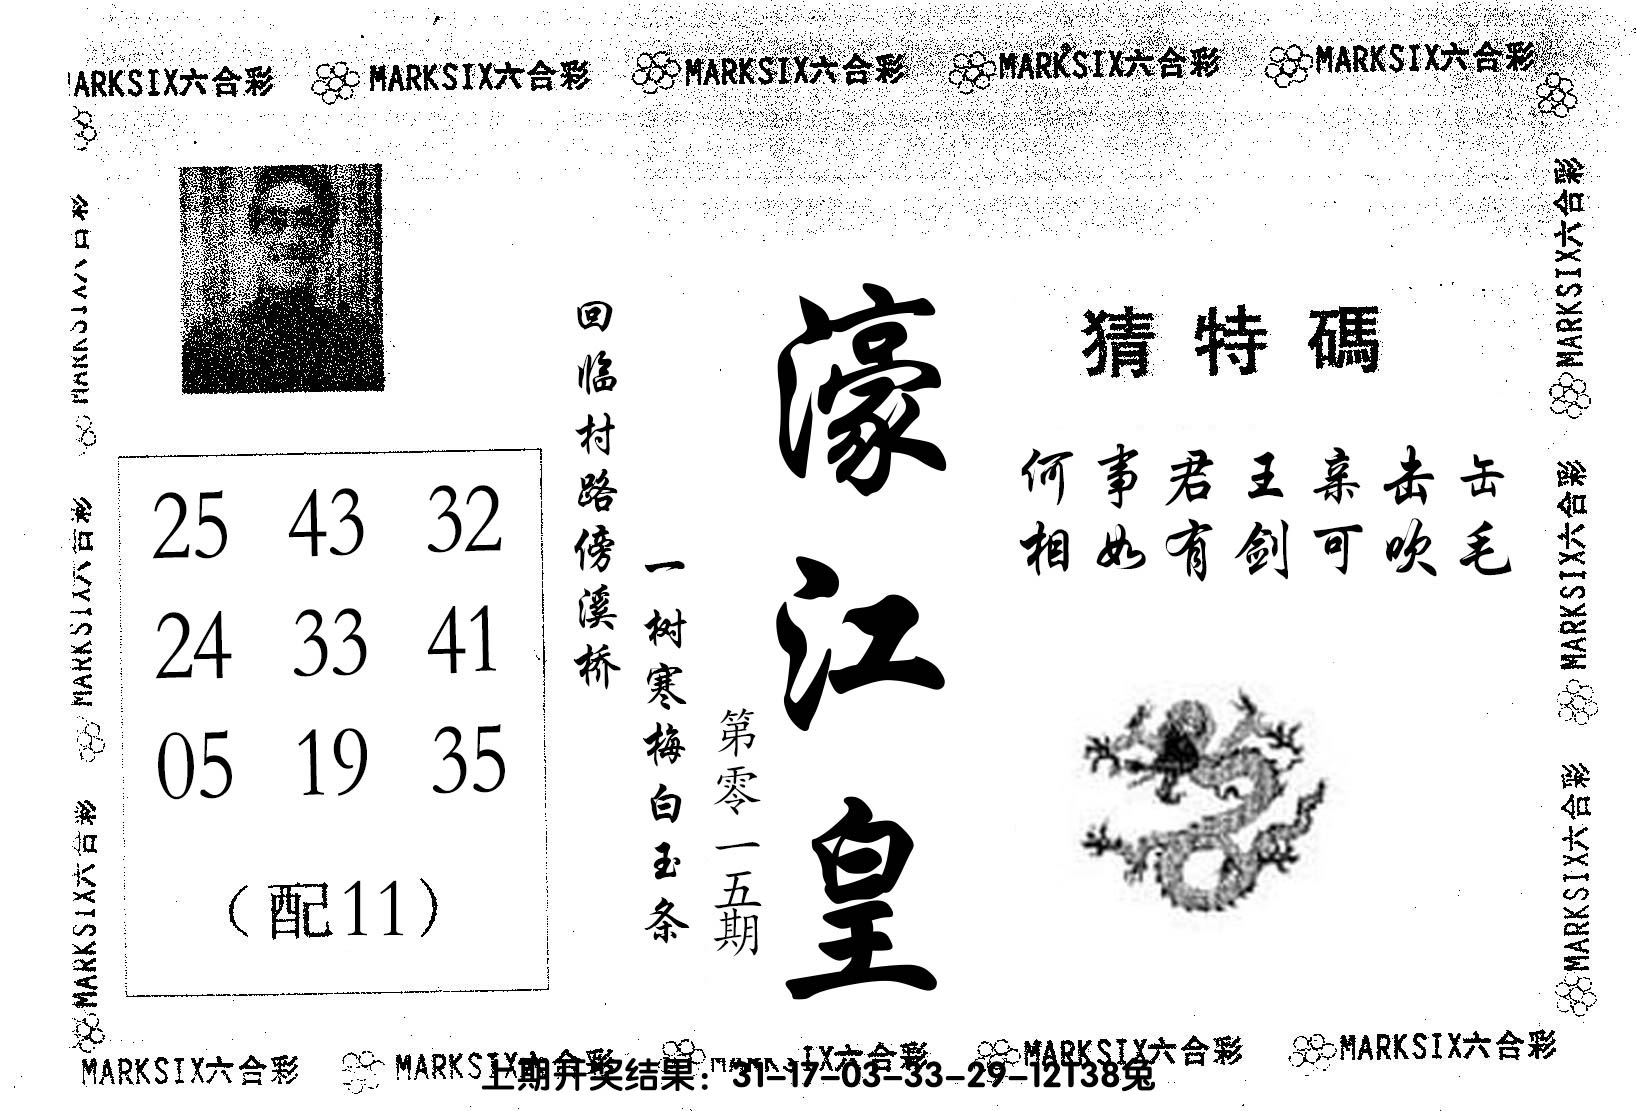 MARKSIX六合彩 MARKSIX六合彩 MARKSIX六合彩 MARKSIX六合彩 MARKSIX六合彩
猜特碼
何事君王亲击缶
相如有剑可吹毛
濠江皇
第零一五期
一树寒梅白玉条
回临村路傍溪桥
25 43 32
24 33 41
05 19 35
（配11）
MARKSIX六合彩
MARKSIX六合彩
MARKSIX六合彩
MARKSIX六合彩
MARKSIX六合彩
MARKSIX六合彩
MARKSIX六合彩 MARKSIX六合彩 MARKSIX六合彩 MARKSIX六合彩 MARKSIX六合彩
上期开奖结果：31-17-03-33-29-12T38兔